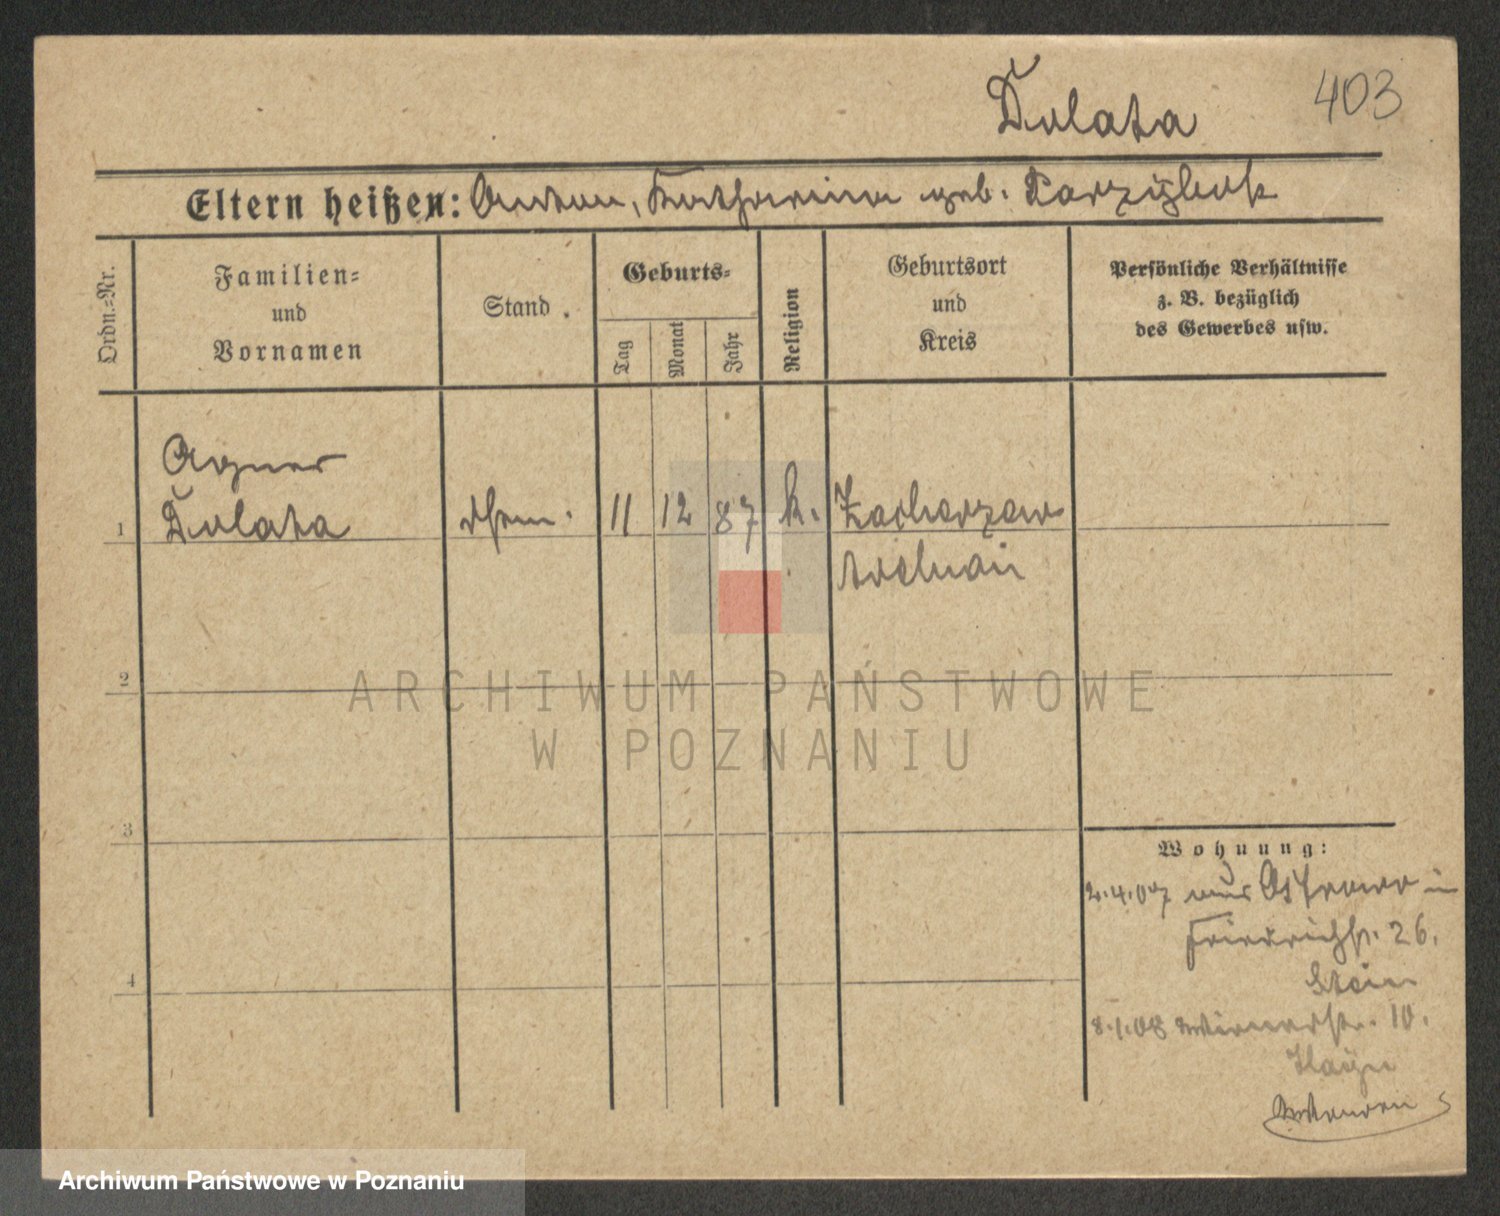 Dolata
403
Eltern heißen: Anton, Katharina geb. Parzybok
Ordn.=Nr.
Familien=
und
Vornamen
Stand.
Geburts=
Tag
Monat
Jahr
Religion
Geburtsort
und
Kreis
Persönliche Verhältnisse
z. B. bezüglich
des Gewerbes usw.
Agnes
1 Dolata 11 12 87 k. Zacharzew
Adelnau
2
3
4
Wohnung:
2.4.07 aus Ostrowo in
Friedrichstr. 26.
Stein
8.1.08 10.
ARCHIWUM PAŃSTWOWE
W POZNANIU
Archiwum Państwowe w Poznaniu